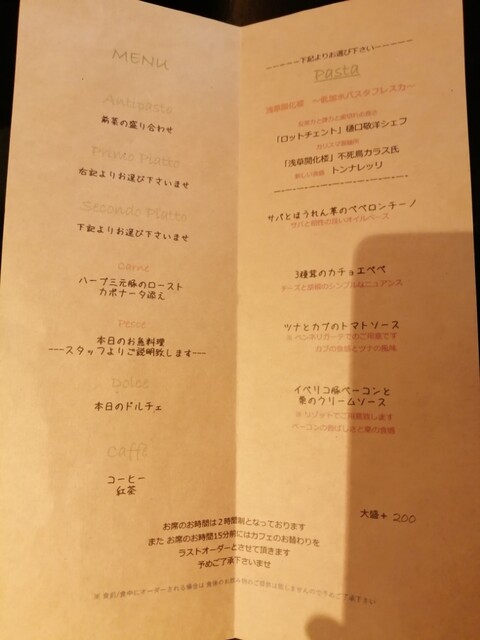 MENU
Antipasto
前菜の盛り合わせ
Primo Piatto
右記よりお選び下さいませ
Secondo Piatto
下記よりお選び下さいませ
Carne
ハーブ三元豚のロースト
カポナータ添え
Pesce
本日のお魚料理
---スタッフよりご説明致します---
Dolce
本日のドルチェ
Caffè
コーヒー
紅茶
-----下記よりお選び下さい-----
Pasta
浅草開化楼 ～低加水パスタフレスカ～
「ロットチェント」樋口敬洋シェフ
カリスマ製麺師
「浅草開化楼」不死鳥カラス氏
新しい食感 トンナレッリ
サバとほうれん草のペペロンチーノ
サバと相性の良いオイルベース
3種茸のカチョエペペ
チーズと胡椒のシンプルなニュアンス
ツナとカブのトマトソース
※ペンネリガーテでのご用意です
カブの食感とツナの風味
イベリコ豚ベーコンと
栗のクリームソース
※リゾットでご用意致します
ベーコンの香ばしさと栗の食感
大盛+ 200
お席のお時間は2時間制となっております
また お席のお時間15分前にはカフェのお替わりを
ラストオーダーとさせて頂きます
予めご了承下さいませ